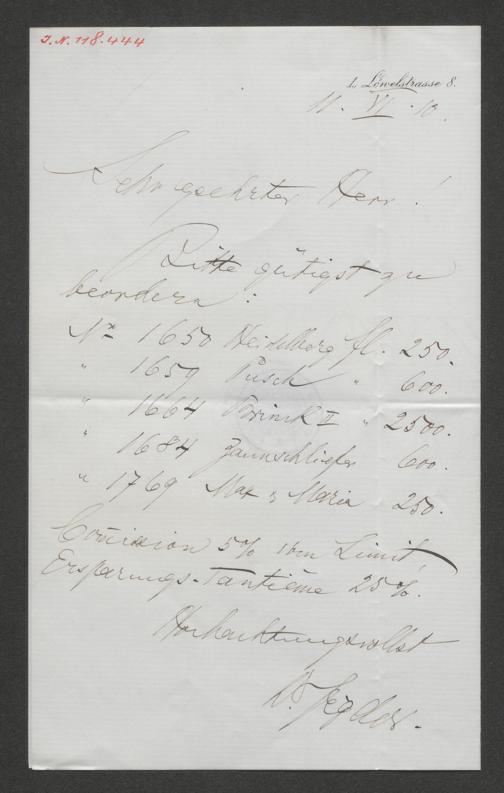 I.N. 118.444
I., Löwelstrasse 8.
11. VI. 10.
Sehr geehrter Herr!
Bitte gütigst zu
beordern:
No 1650 Heidelberg fl. 250.
" 1659 Pusch " 600.
" 1664 Brinck II " 2500.
" 1684 Zaunschliefer 600.
" 1769 Max & Maria 250.
Com̄ission 5% vom Limit,
Ersparungs-Tantième 25%.
Hochachtungsvollst
Dr.